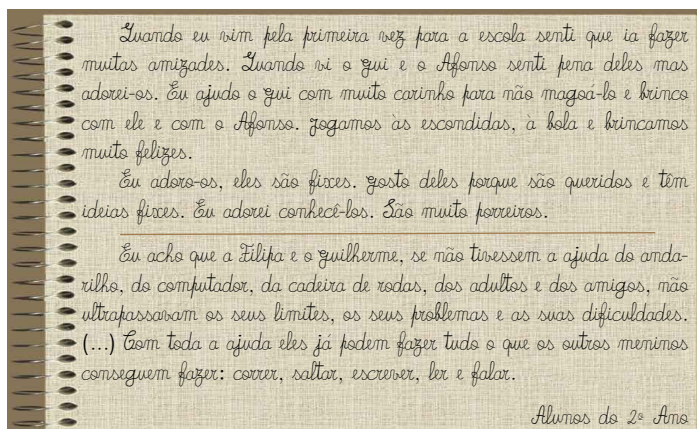 Quando eu vim pela primeira vez para a escola senti que ia fazer
muitas amizades. Quando vi o Gui e o Afonso senti pena deles mas
adorei-os. Eu ajudo o Gui com muito carinho para não magoá-lo e brinco
com ele e com o Afonso. Jogamos às escondidas, à bola e brincamos
muito felizes.
Eu adoro-os, eles são fixes. Gosto deles porque são queridos e têm
ideias fixes. Eu adorei conhecê-los. São muito porreiros.
Eu acho que a Filipa e o Guilherme, se não tivessem a ajuda do anda-
rilho, do computador, da cadeira de rodas, dos adultos e dos amigos, não
ultrapassavam os seus limites, os seus problemas e as suas dificuldades.
(...) Com toda a ajuda eles já podem fazer tudo o que os outros meninos
conseguem fazer: correr, saltar, escrever, ler e falar.
Alunos do 2º Ano